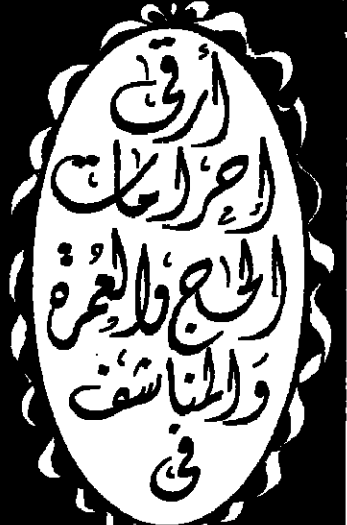 أرقى
إحرامات
الحاج والعمرة
والمناشف
في